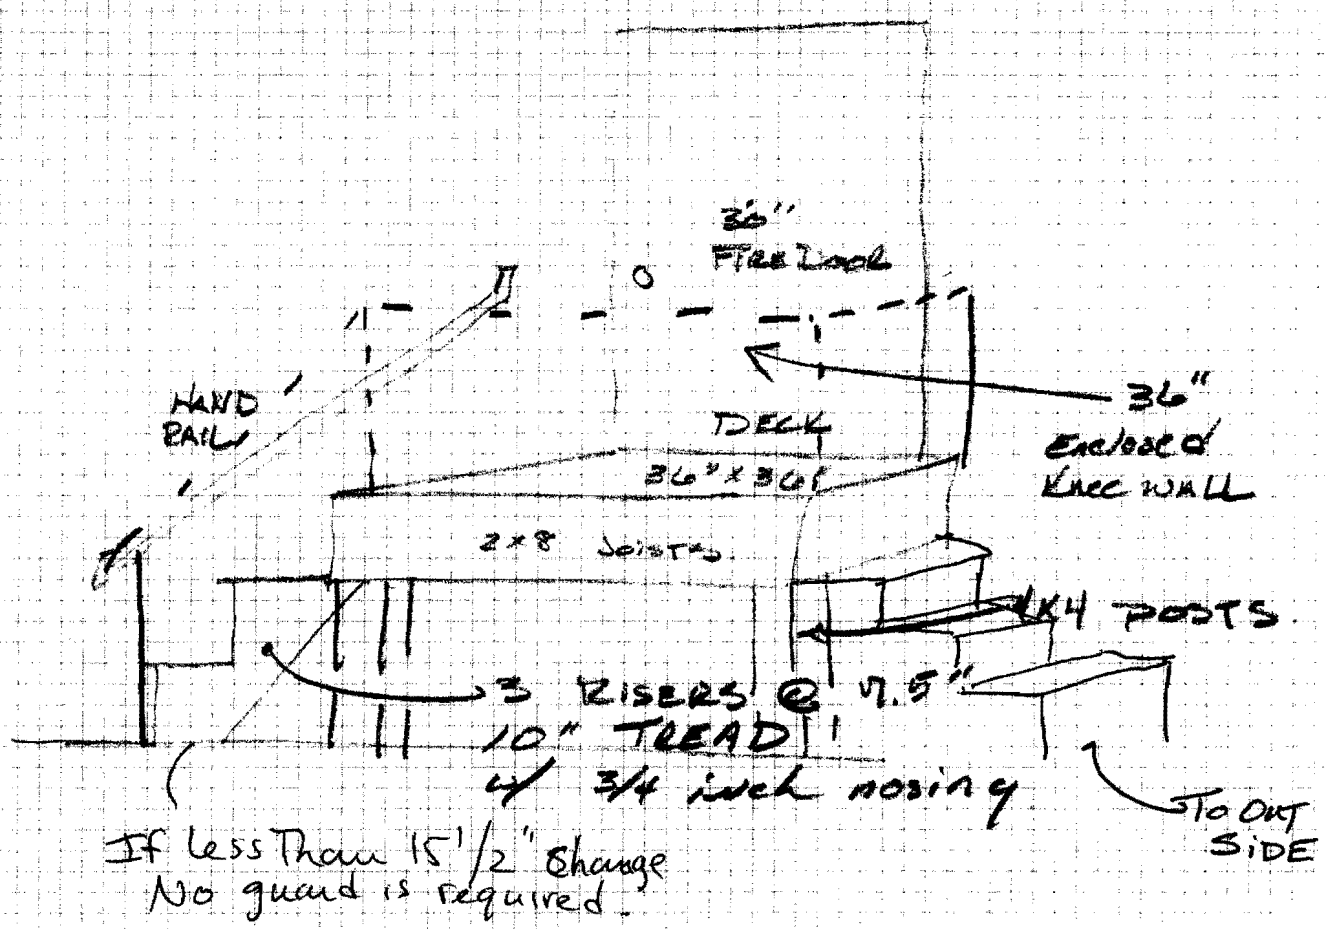 36"
FIRE DOOR
HAND
RAIL
36"
Enclosed
Knee WALL
DECK
36" x 36"
2x8 JOISTS.
4x4 POSTS.
3 RISERS @ 7.5"
10" TREAD
w/ 3/4 inch nosing
To OUT
SIDE
If less Than 15 1/2" Change
No guard is required.